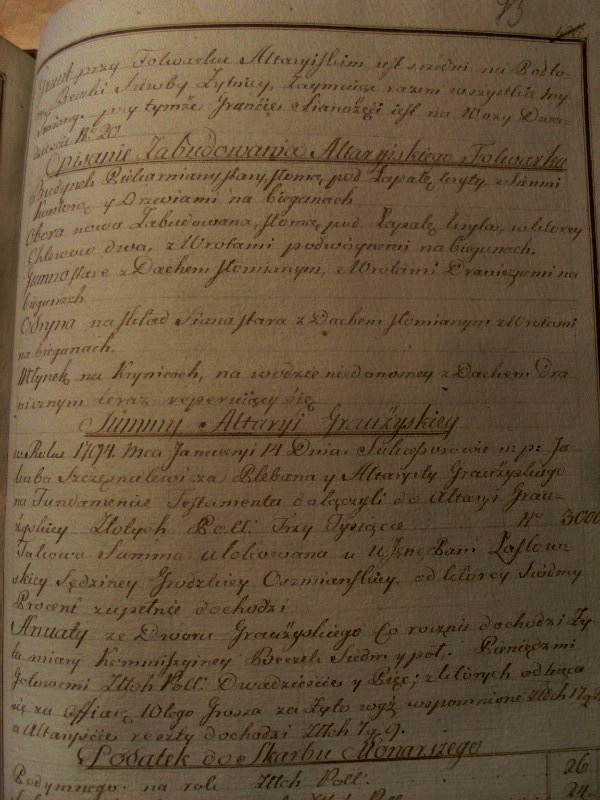 93
Grunt przy Folwarku Altaryiskim iest sredni na Podło-
gę Beczki Siewby Żytniey, Zaymuiąc razem wszystkie try
Zmiany, przy tymże Gruncie Sianożęci iest na Wozy Dwa-
dziescia N° 20
Opisanie Zabudowania Altaryiskiego Folwarku
Budynek Piekarniany stary, słomą pod Łapatę kryty z Sienni
Komorą y Drzwiami na biegunach
Obora nowo Zabudowana, słomą pod Łapatę kryta, w ktorey
Chlewow dwa, z Wrotami podwoynemi na biegunach.
Gumno stare z Dachem słomianym, z Wrotami Draniczemi na
biegunach
Odryna na skład Siana stara z Dachem słomianym z Wrotami
na biegunach.
Młynek na Krynicach, na wodzie niedonosney z Dachem Dra-
nicznym teraz reperuiący się
Summy Altaryi Graużyskiey
w Roku 1794. Mca Januaryi 14 Dnia. Sukcessorowie n: p: Ja-
kuba Szczęsnulewicza Plebana y Altarysty Graużyskiego
na Fundamencie Testamentu dołączyli do Altaryi Grau-
żyskiey Złotych Poll. Trzy Tysiące N° 3000
Takowa Summa ulokowana u WJeney Pani Łastow-
skiey Sędziney Grodzkiey Oszmianskiey, od ktorey Siodmy
Procent zupełnie dochodzi
Anuaty ze Dworu Graużyskiego Co rocznie dochodzi Ży-
ta miary Kommissyiney Beczek Siedm y poł, Pieniędzmi
Gotowemi Złtch Poll. Dwadziescie y Pięć; z ktorych odtrąca
się za Ofiarę 10tego Grosza za Żyto wyż wspomnione Złtch 17 g
a Altaryscie reszty dochodzi Złtch 7 g.
Podatek do Skarbu Monarszego
Podymnego na rok Złtch Poll. 26
24